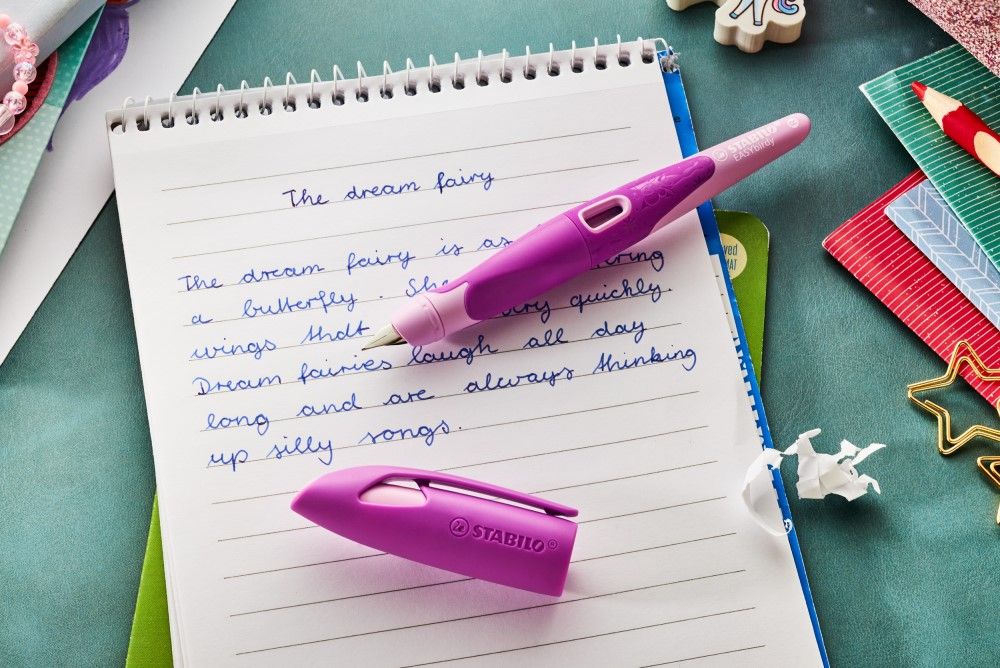 The dream fairy
The dream fairy is as
a butterfly. She
wings that very quickly.
Dream fairies laugh all day
long and are always thinking
up silly songs.
STABILO
EASYbirdy
STABILO